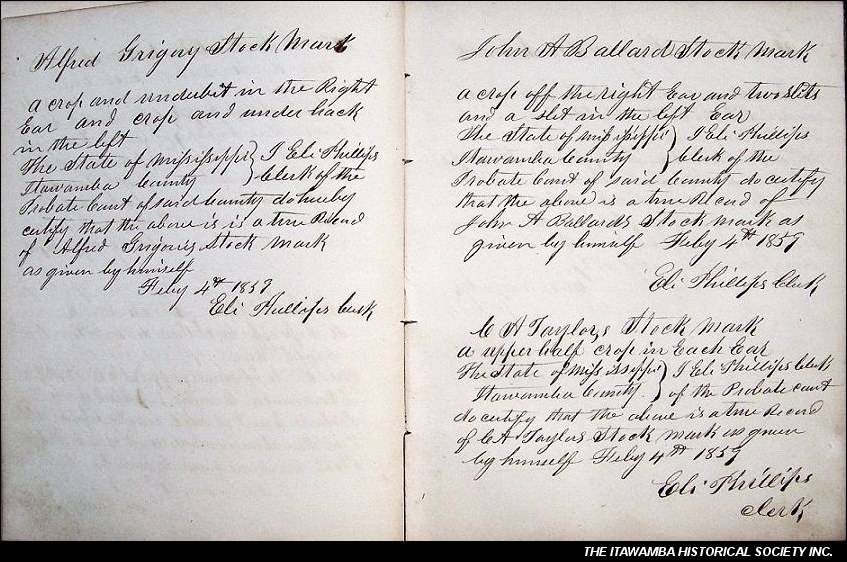 Alfred Grigory Stock Mark
a crop and underbit in the Right
Ear and crop and under back
in the left
The State of Mississippi } I Eli Phillips
Itawamba County } Clerk of the
Probate Court of said County do hereby
certify that the above is is a true Record
of Alfred Grigories Stock Mark
as given by himself
Feby 4th 1859
Eli Phillips Clerk
John A Ballard Stock Mark
a crop off the right Ear and two slits
and a slit in the left Ear
The State of Mississippi } I Eli Phillips
Itawamba County } Clerk of the
Probate Court of said County do certify
that the above is a true Record of
John A Ballards Stock Mark as
given by himself Feby 4th 1859
Eli Phillips Clerk
C A Taylors Stock Mark
a upper half crop in Each Ear
The State of Mississippi } I Eli Phillips Clerk
Itawamba County } of the Probate Court
do certify that the above is a true Record
of C A Taylors Stock Mark as given
by himself Feby 4th 1859
Eli Phillips
Clerk
THE ITAWAMBA HISTORICAL SOCIETY INC.